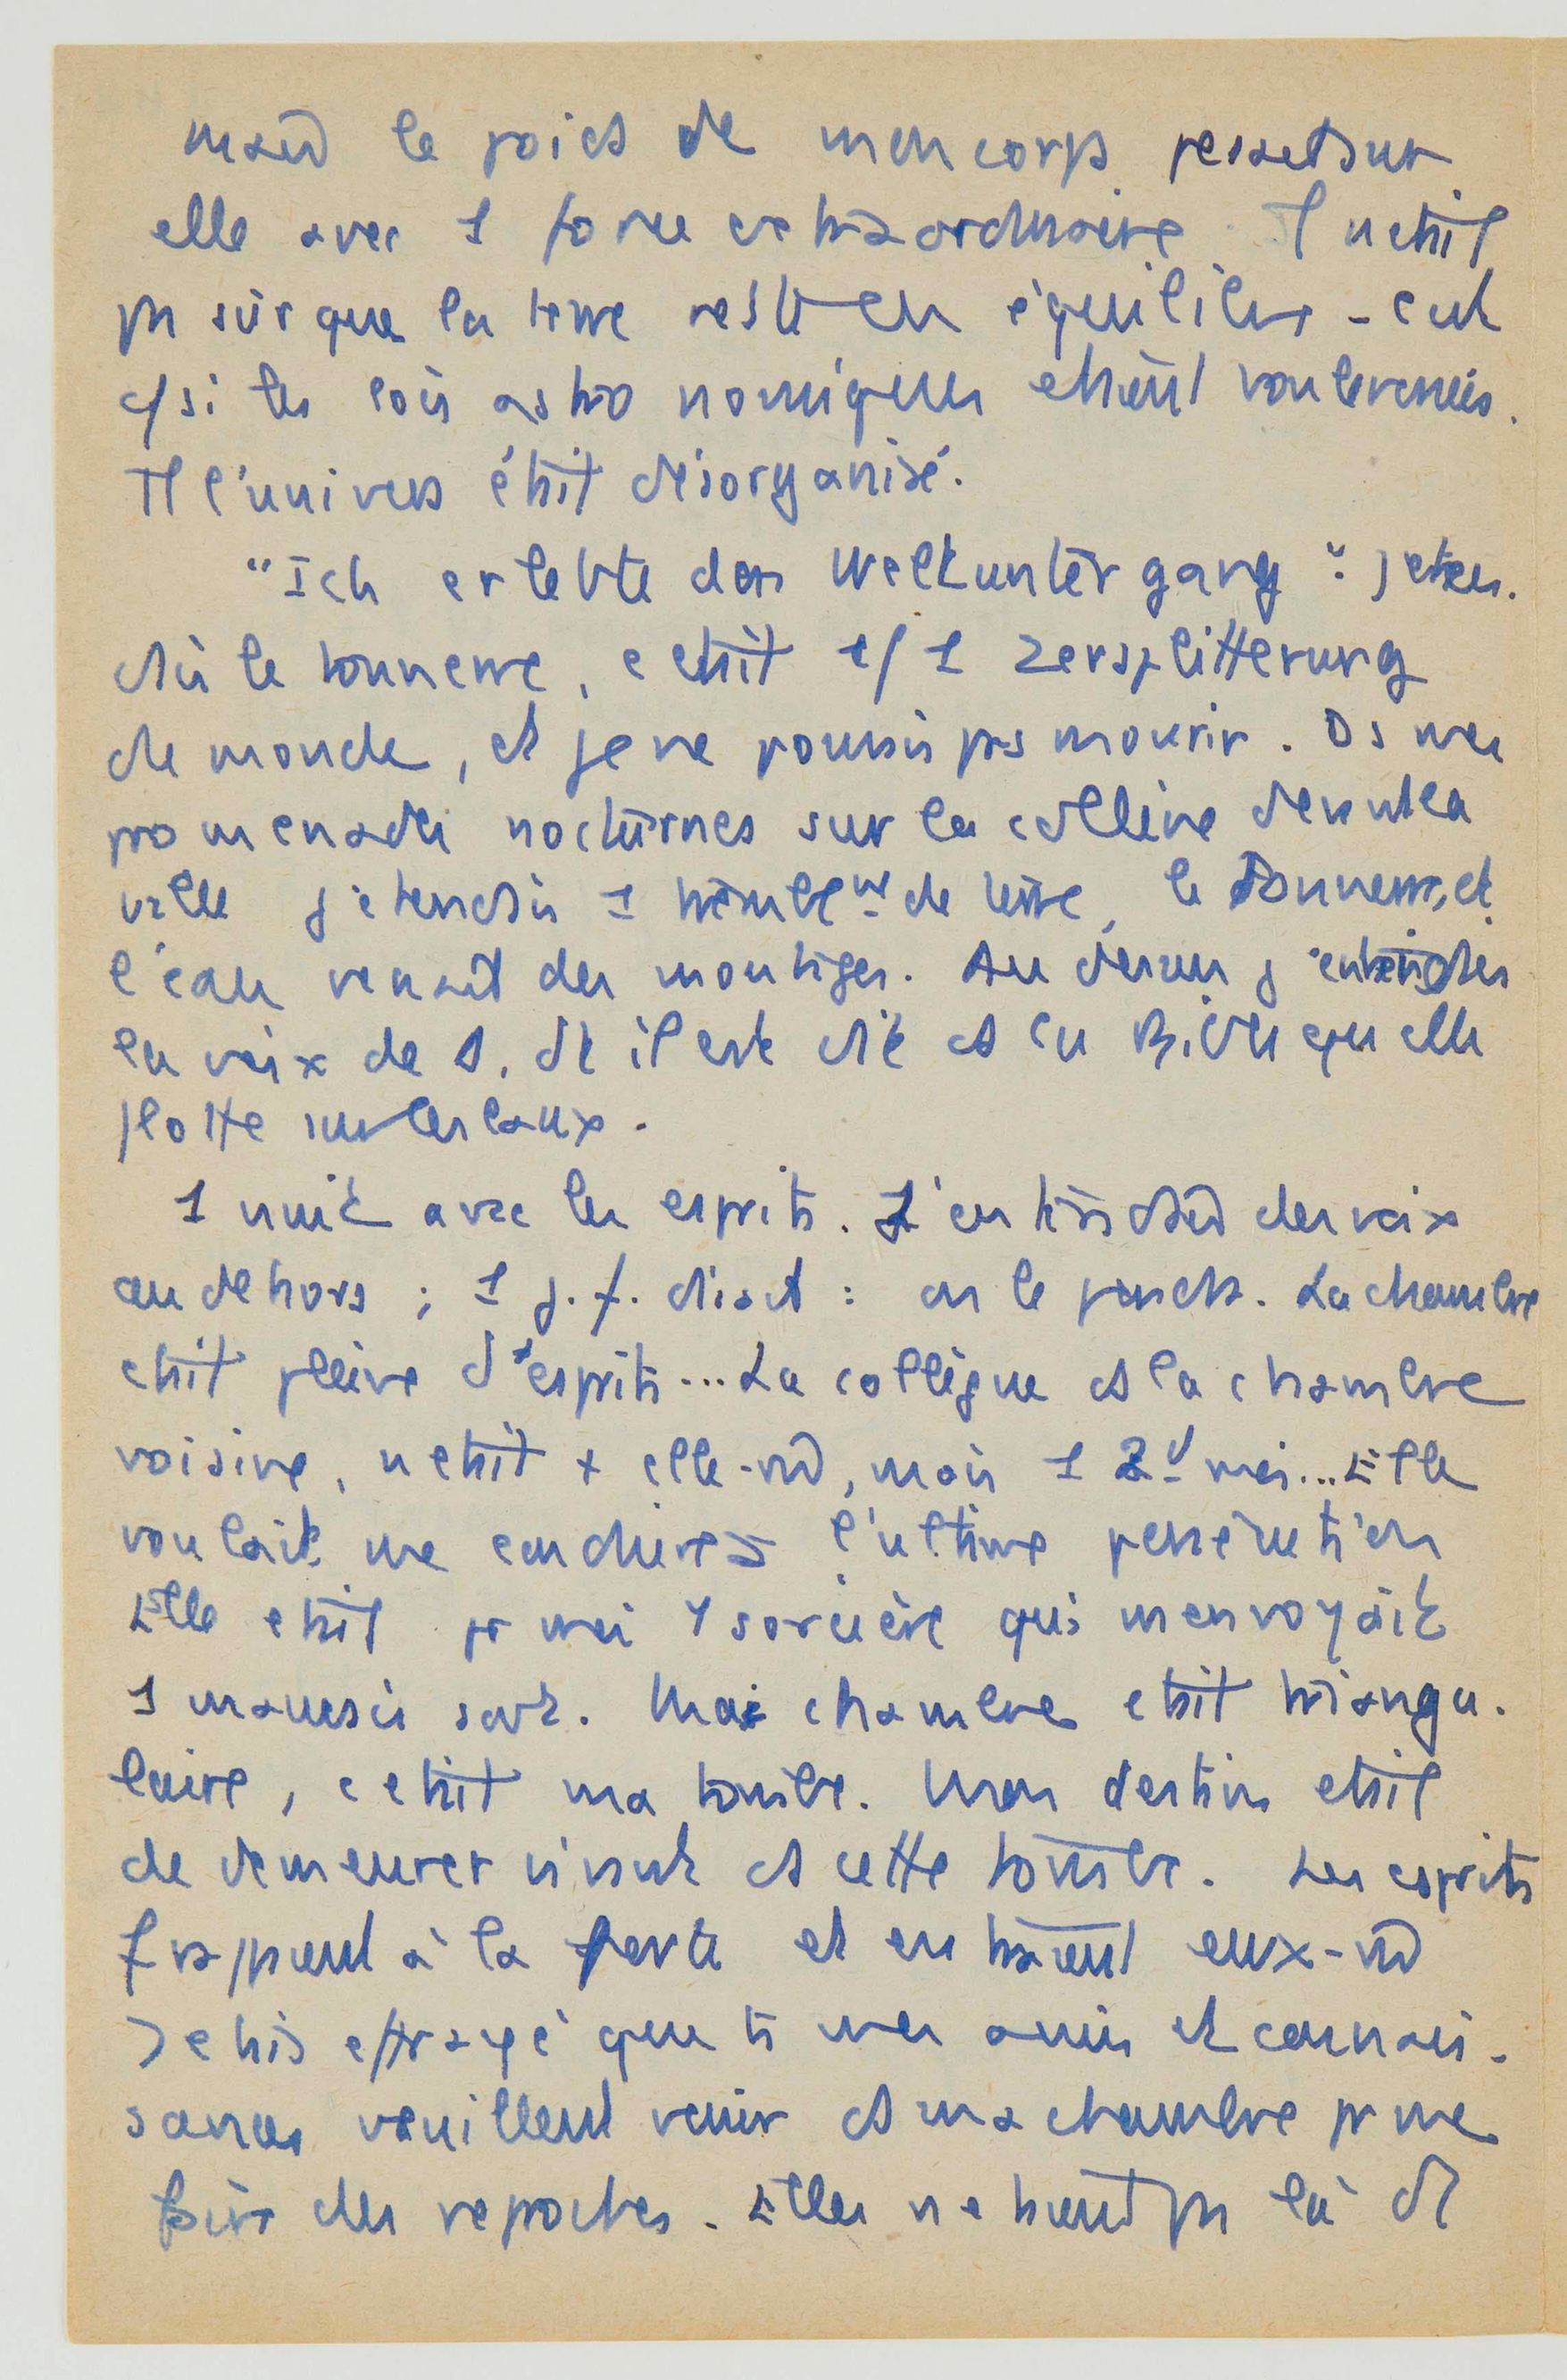 le poids de mon corps pesait sur
elle avec 1 force extraordinaire. Il n etait
pas sûr que la terre restât en équilibre - c ets
c/ si les lois astronomiques etaient bouleversées.
Tt l'univers était désorganisé.
"Ich erlebte den Weltuntergang": j enten-
dis le tonnerre, c etait c/ 1 Zersplitterung
de monde, et je ne pouvais pas mourir. Ds mes
promenades nocturnes sur la colline devant la
ville j'etendais 1 tremblemt de terre, le tonnerre, et
l'eau venait des montagnes. Au dessus j entendais
la voix de D. dt il est dit ds la Bible qu elle
flotte sur les eaux.
1 nuit avec les esprits. J'entendais des voix
au dehors ; 1 j. f. disait : on le pends. La chambre
etait pleine d'esprits... La collègue ds la chambre
voisine, n etait + elle-mê, mais 1 2d moi... Elle
voulait me conduire à l'ultime persécution
Elle etait pr moi 1 sorcière qui m envoyait
1 mauvais sort. Ma chambre etait triangu-
laire, c etait ma tombe. Mon destin etait
de demeurer vivant ds cette tombe. Les esprits
frappent à la porte et entraient eux-mê
J etais effrayé que ts mes amis et connais-
sances veuillent venir ds ma chambre pr me
faire des reproches. Elles n etaient pas là ds